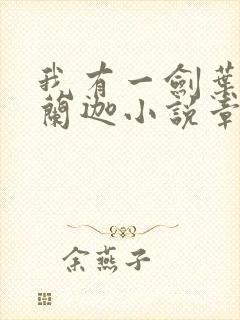 我有一劍葉
蘭迦小說章
余燕子